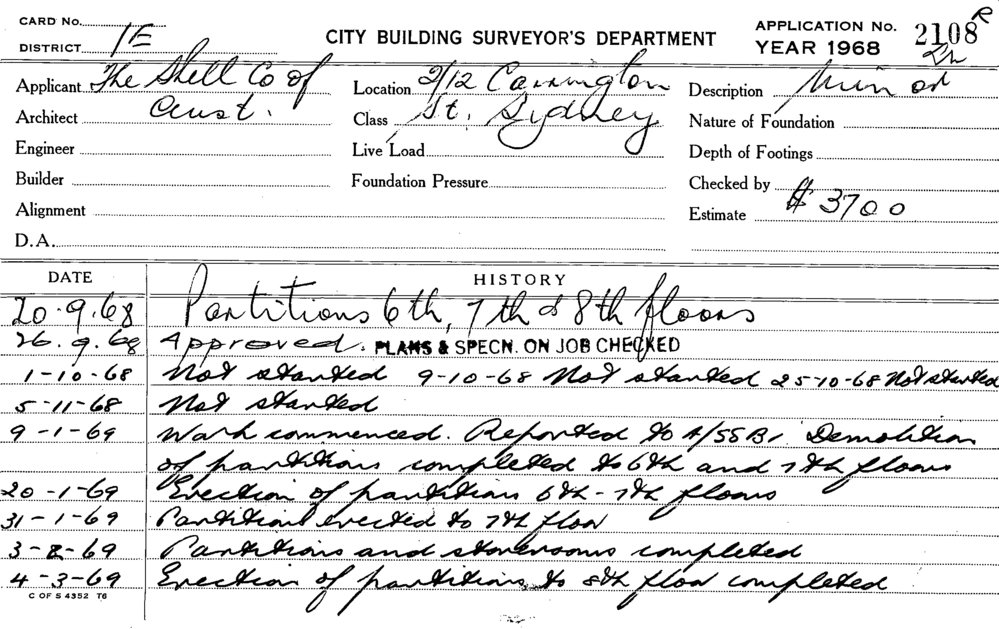 CARD No.
DISTRICT 1E
CITY BUILDING SURVEYOR'S DEPARTMENT
APPLICATION No. 2108 R
YEAR 1968
Applicant The Shell Co of
Location 2/12 Carrington
Description Min
Architect Aust.
Class St. Sydney
Nature of Foundation
Engineer
Live Load
Depth of Footings
Builder
Foundation Pressure
Checked by
Alignment
Estimate $3700
D.A.
DATE HISTORY
20.9.68 Partitions 6th, 7th & 8th floors
26.9.68 Approved. PLANS & SPECN. ON JOB CHECKED
1-10-68 Not started 9-10-68 Not started 25-10-68 Not started
5-11-68 Not started
9-1-69 Work commenced. Reported to A/SSBI. Demolition
of partitions completed to 6th and 7th floors
20-1-69 Erection of partitions 6th - 7th floors
31-1-69 Partitions erected to 7th floor
3-2-69 Partitions and storerooms completed
4-3-69 Erection of partitions to 8th floor completed
C OF S 4352 T6